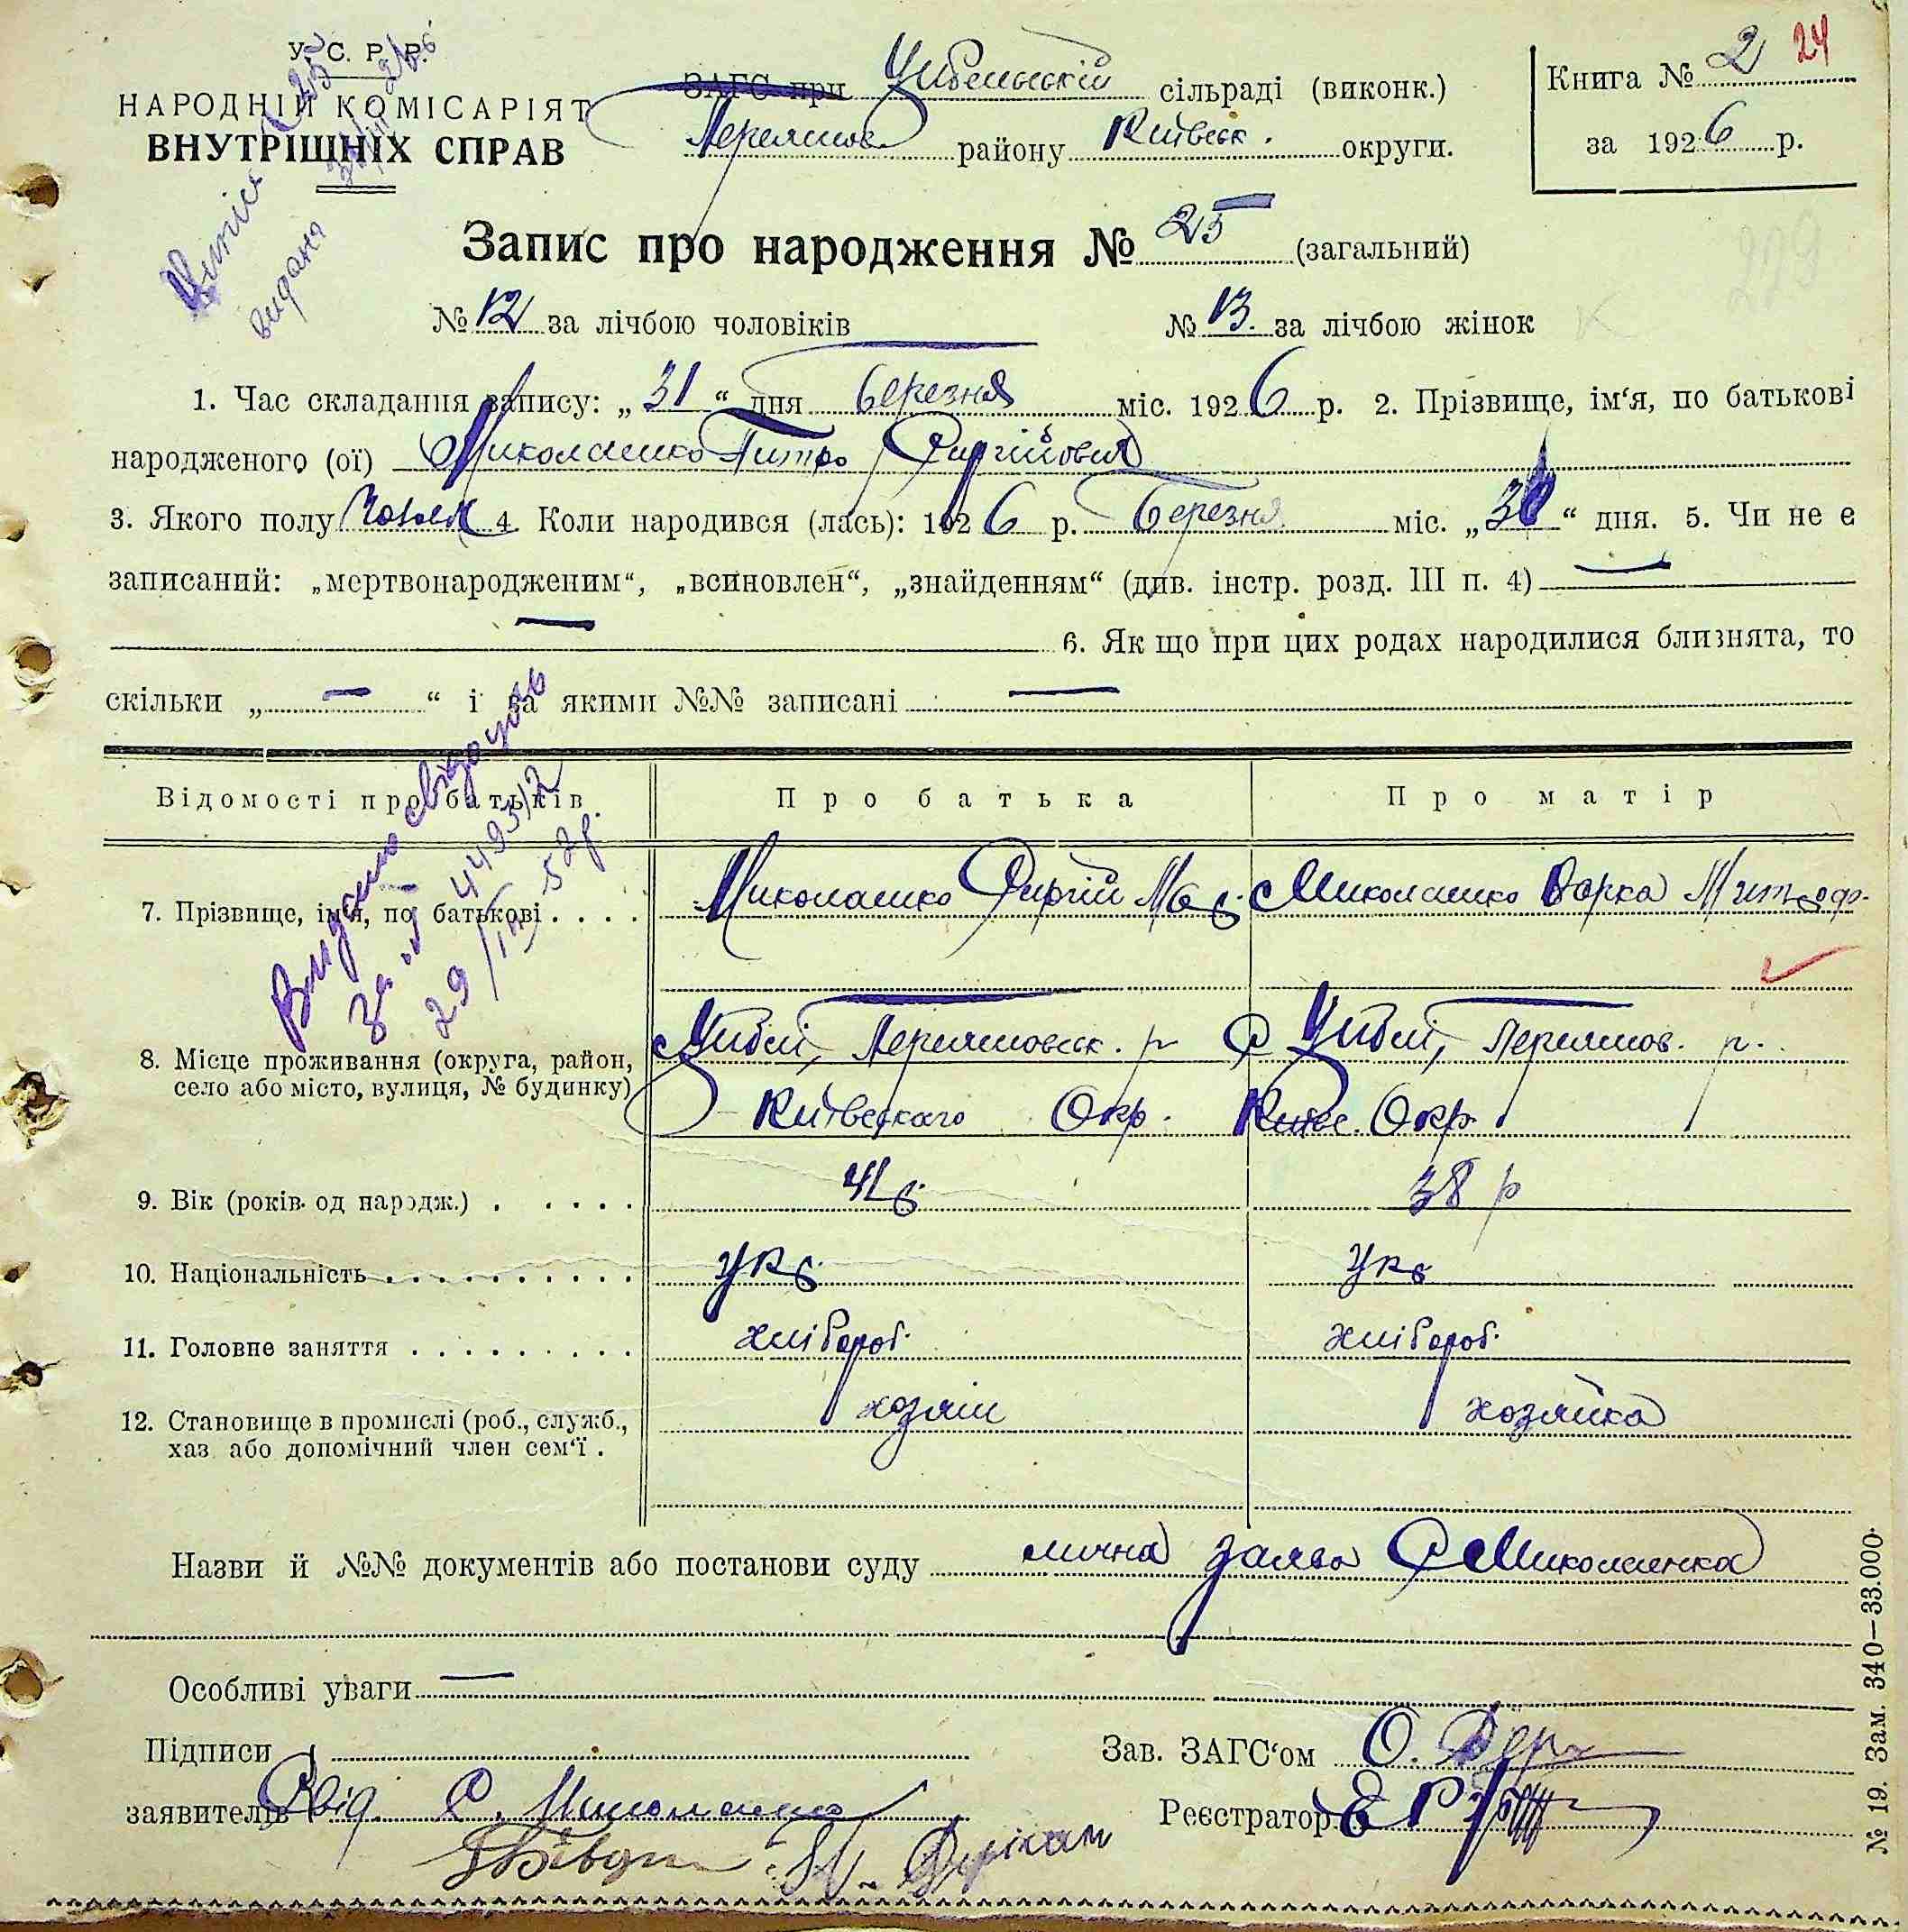 У. С. Р. Р.
НАРОДНІЙ КОМІСАРІЯТ
ВНУТРІШНІХ СПРАВ
ЗАГС при Цибельській сільраді (виконк.)
району Київськ. округи.
Книга № 2 24
за 1926 р.
Запис про народження № 25 (загальний)
229
видана
№ 12 за лічбою чоловіків № 13. за лічбою жінок
1. Час складання запису: „31“ дня березня міс. 1926 р. 2. Прізвище, ім‘я, по батькові
народженого (ої) Миколаенко Питро Сиргійович
3. Якого полу Чолов 4. Коли народився (лась): 1926 р. березня міс. „30“ дня. 5. Чи не є
записаний: „мертвонародженим“, „всиновлен“, „знайденням“ (див. інстр. розд. III п. 4) —
— 6. Як що при цих родах народилися близнята, то
скільки „—“ і за якими №№ записані —
Відомості про батьків. Про батька Про матір
Видано свідоцтво
29/III 52р.
7. Прізвище, ім‘я, по батькові . . . . Миколаенко Сиргій Миколаенко Варка
8. Місце проживання (округа, район,
село або місто, вулиця, № будинку)
Циблі, р С Циблі, р.
Київського Окр. Києвс. Окр
9. Вік (років. од народж.) . . . . . 41 38 р
10. Національність . . . . . . . . . . укр укр
11. Головне заняття . . . . . . . . . хлібороб. хлібороб.
12. Становище в промислі (роб., служб.,
хаз. або допомічний член сем‘ї .
хозяїн хозяйка
Назви й №№ документів або постанови суду лична заява С Миколаенка
Особливі уваги —
Підписи Зав. ЗАГС‘ом О.
заявителів С. Миколаенко Реєстратор
№ 19. Зам. 340—33.000.